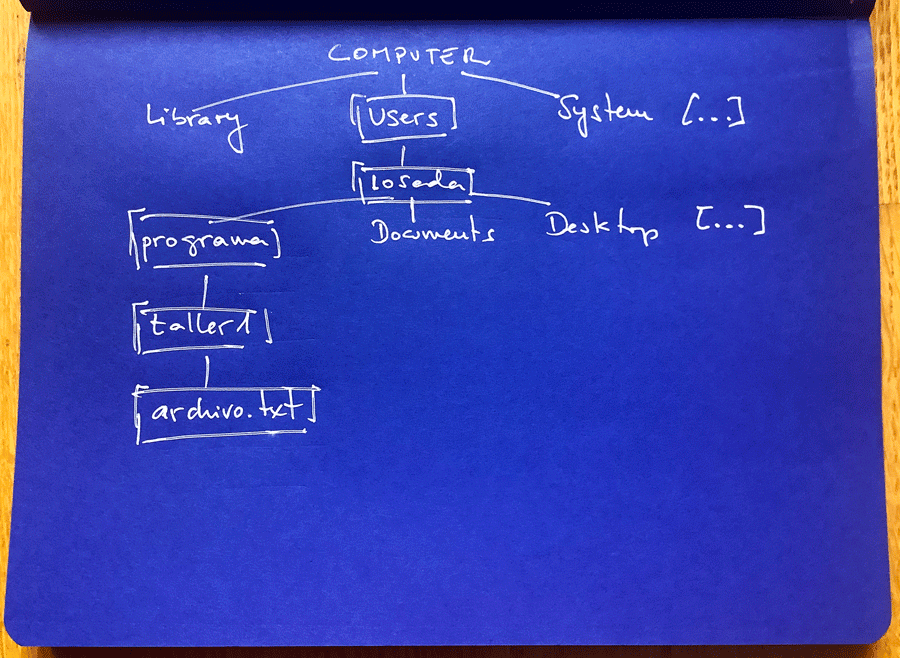 COMPUTER
Library Users System [...]
Losada
programa Documents Desktop [...]
taller1
archivo.txt